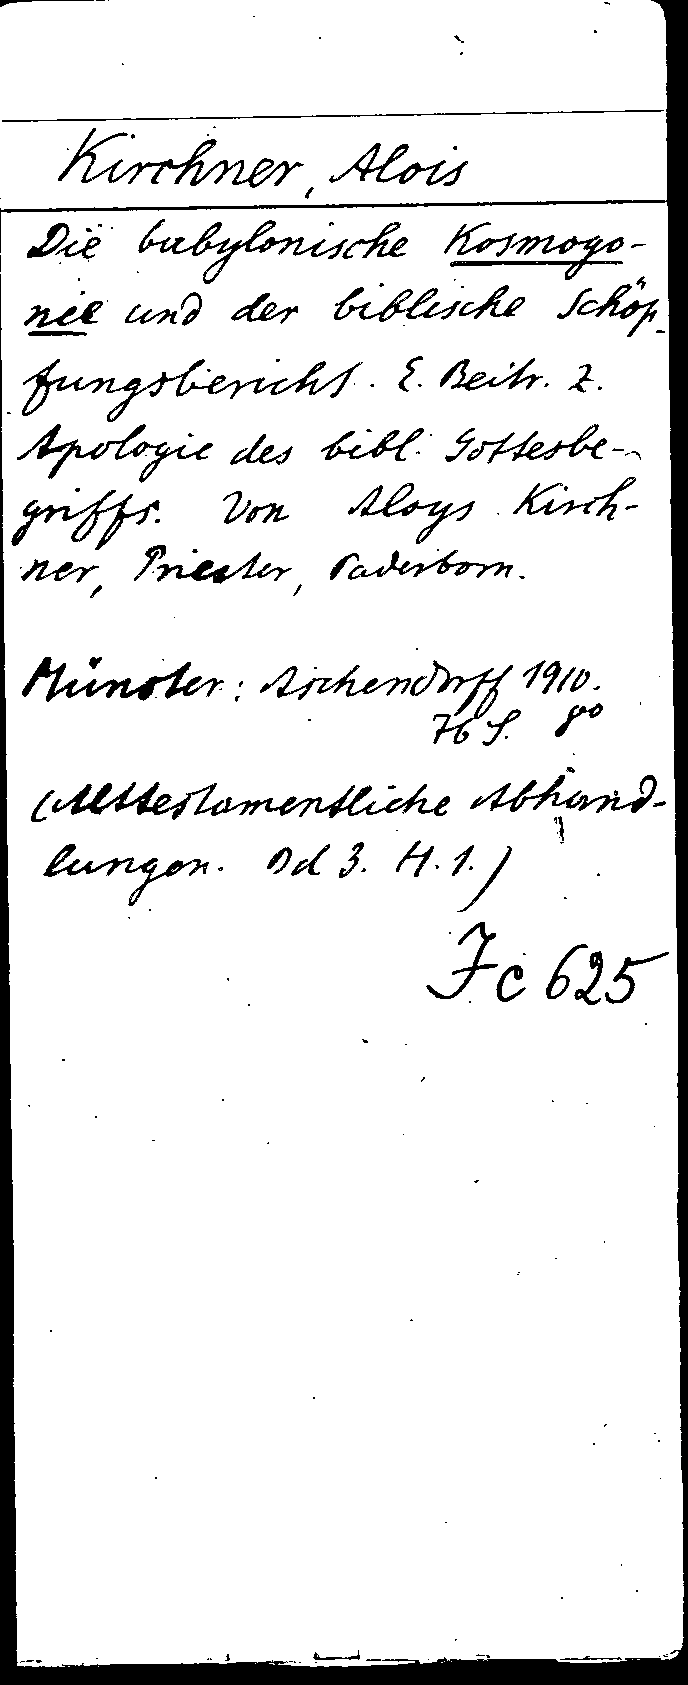 Kirchner, Alois
Die babylonische Kosmogo-
nie und der biblische Schöp-
fungsbericht. E. Beitr. z.
Apologie des bibl. Gottesbe-
griffs. Von Aloys Kirch-
ner, Priester, Paderborn.
Münster: Aschendorff 1910.
76 S. 8°
(Alttestamentliche Abhand-
lungen. Bd 3. H. 1.)
Jc 625